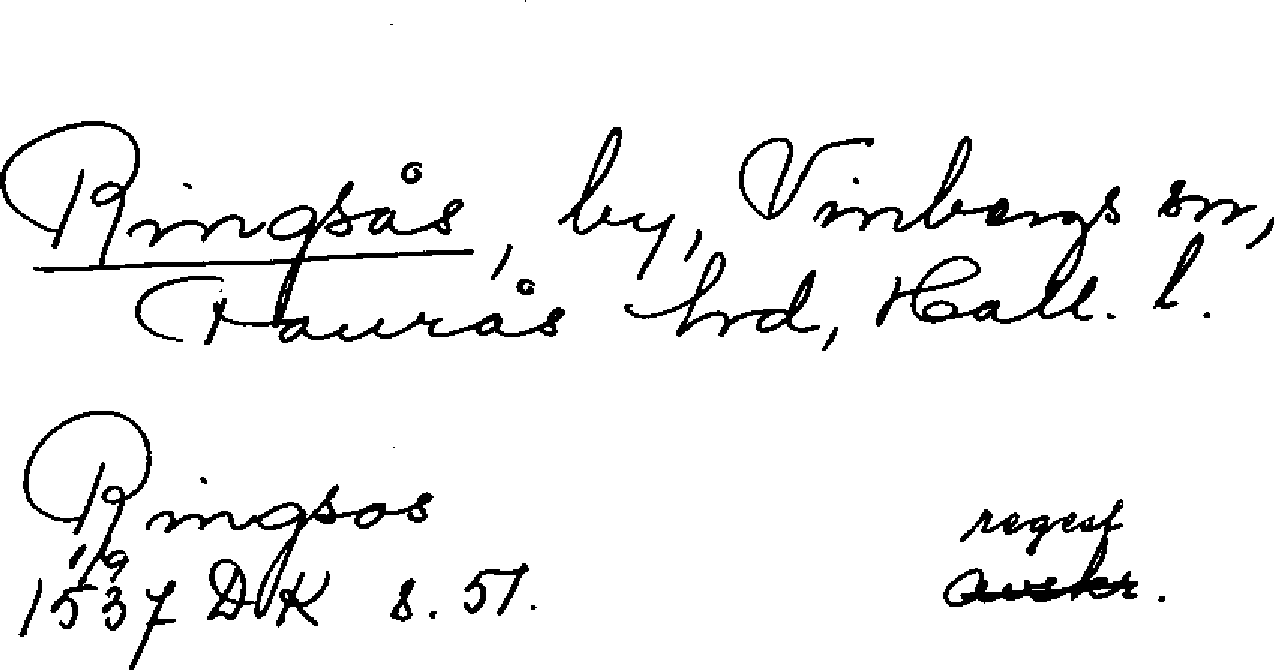 Ringsås, by, Vinbergs sn,
Faurås hd, Hall. l.
Ringsos
1537 1/9 DK s. 51.
regest
avskr.